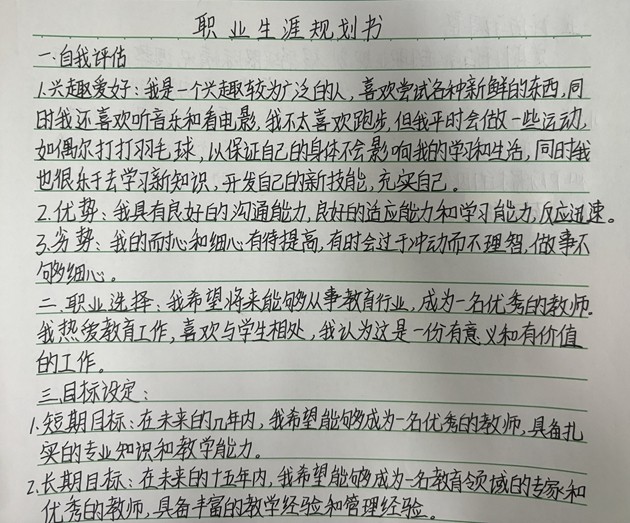 职业生涯规划书
一.自我评估
1.兴趣爱好:我是一个兴趣较为广泛的人,喜欢尝试各种新鲜的东西,同
时我还喜欢听音乐和看电影,我不太喜欢跑步,但我平时会做一些运动,
如偶尔打打羽毛球,以保证自己的身体不会影响我的学习和生活,同时我
也很乐于去学习新知识,开发自己的新技能,充实自己。
2.优势:我具有良好的沟通能力,良好的适应能力和学习能力,反应迅速。
3.劣势:我的耐心和细心有待提高,有时会过于冲动而不理智,做事不
够细心。
二.职业选择:我希望将来能够从事教育行业,成为一名优秀的教师.
我热爱教育工作,喜欢与学生相处,我认为这是一份有意义和有价值
的工作。
三.目标设定:
1.短期目标:在未来的几年内,我希望能够成为一名优秀的教师,具备扎
实的专业知识和教学能力。
2.长期目标:在未来的十五年内,我希望能够成为一名教育领域的专家和
优秀的教师,具备丰富的教学经验和管理经验。